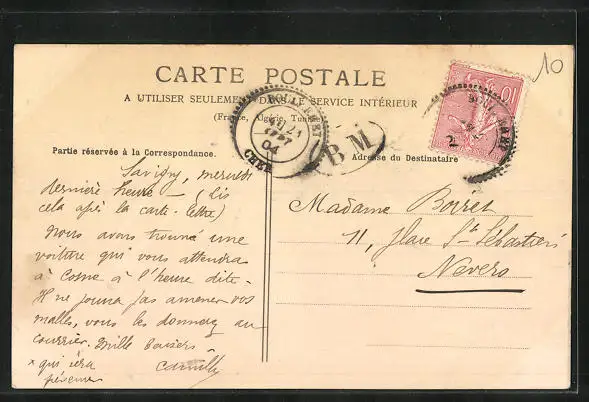 CARTE POSTALE
A UTILISER SEULEMENT DANS LE SERVICE INTÉRIEUR
(France, Algérie, Tunisie)
Partie réservée à la Correspondance.
Adresse du Destinataire
10
BOULLERET
04
CHER
BM
10
2
Savigny, mercredi
dernière heure - (Lis
cela après la carte-lettre)
Nous avons trouvé une
voiture qui vous attendra
à Cosne à l'heure dite.
Il ne pourra pas amener vos
malles, vous les donnerez au
courrier. Mille baisers
x qui sera
Madame Boiret
11, Place St Sébastien
Nevers